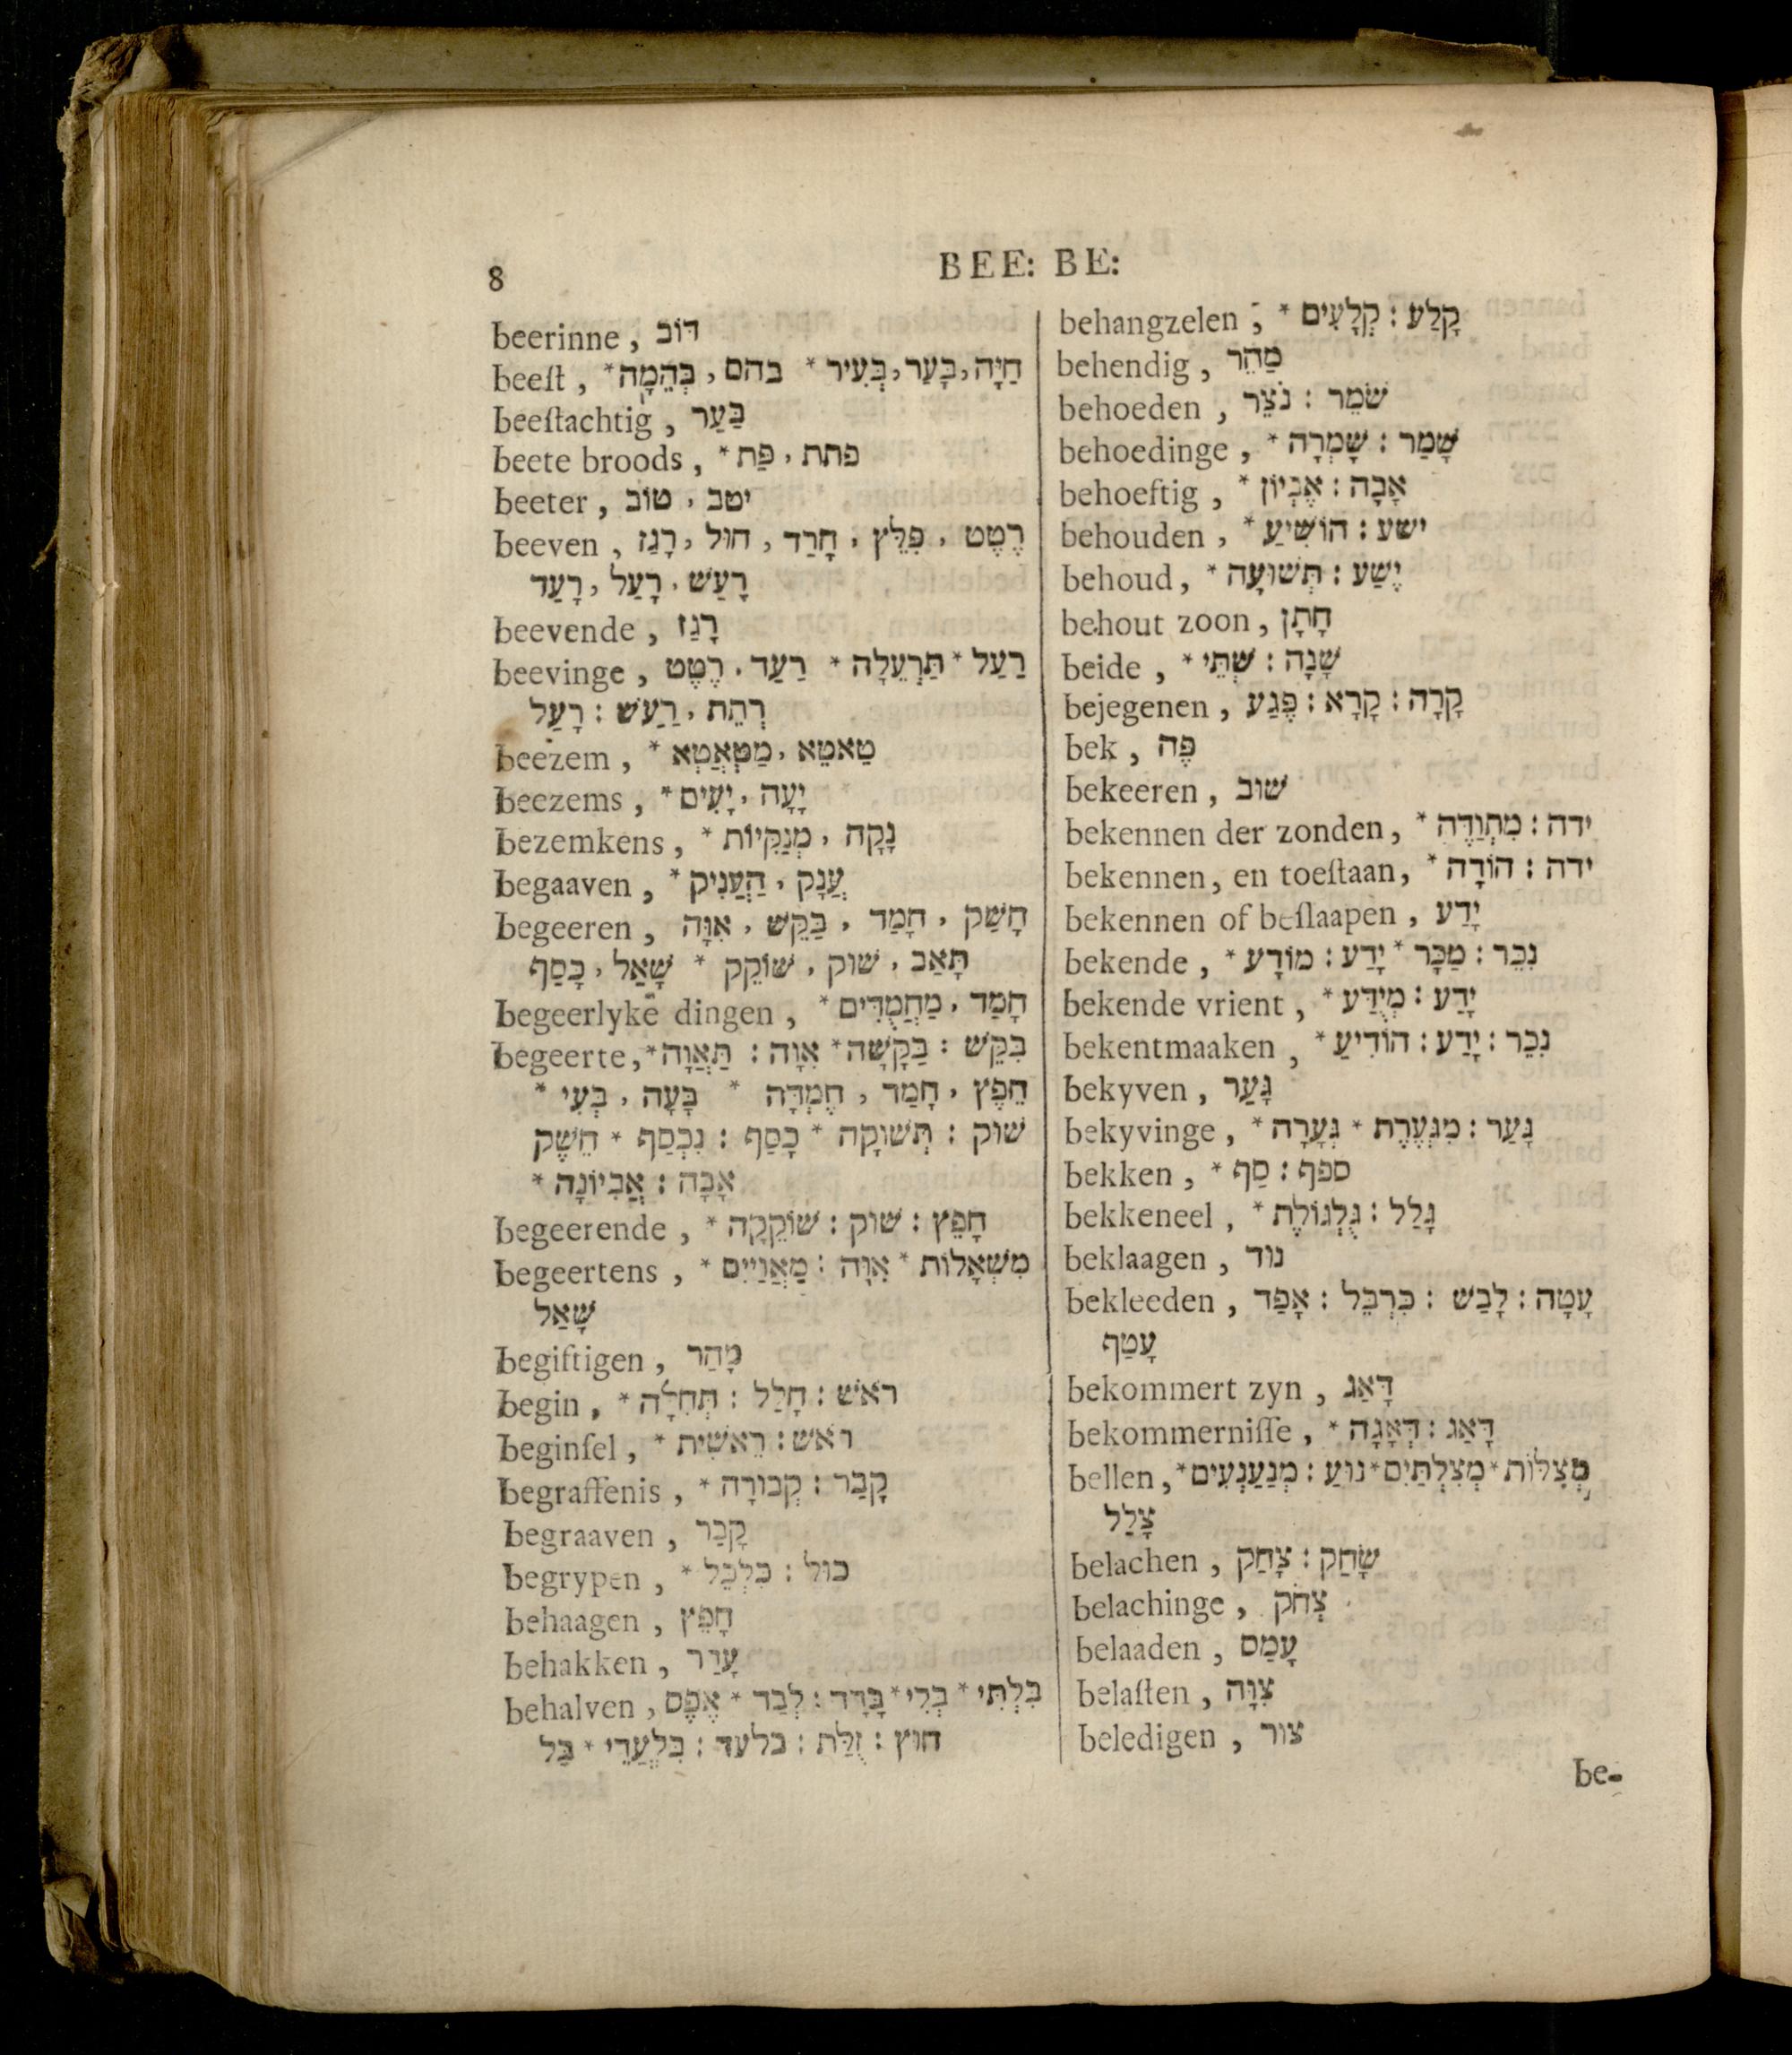 8
BEE: BE:
beerinne, דוֹב
beeſt, *חַיָּה, בָּעַר, בְּעִיר * בהם, בְּהֵמָה
beeſtachtig, בַּעַר
beete broods, *פתת, פַּת
beeter, יטב, טוֹב
beeven, רֶטֶט, פִּלֵּץ, חָרַד, חוּל, רָגַז
רָעַשׁ, רָעַל, רָעַד
beevende, רָגַז
beevinge, רַעַל * תַּרְעֵלָה * רַעַד, רֶטֶט
רְתֵת, רַעַשׁ : רָעַל
beezem, *טַאטֵא, מַטְאֲטֵא
beezems, *יָעָה, יָעִים
bezemkens, *נָקָה, מְנַקִּיּוֹת
begaaven, *עֲנָק, הַעֲנִיק
begeeren, חָשַׁק, חָמַד, בַּקֵּשׁ, אִוָּה
תָּאַב, שׁוּק, שׁוֹקֵק * שָׁאַל, כָּסַף
begeerlyke dingen, *חָמַד, מַחֲמֻדִּים
begeerte, *בִּקֵּשׁ : בַּקָּשָׁה * אִוָה : תַּאֲוָה
חֵפֶץ, חָמַד, חֶמְדָּה * בָּעָה, בְּעִי *
שׁוּק : תְּשׁוּקָה * כָּסַף : נִכְסַף * חֵשֶׁק
אָבָה : אֲבִיּוֹנָה *
begeerende, *חָפֵץ : שׁוּק : שׁוֹקֵקָה
begeertens, *מִשְׁאָלוֹת * אִוָּה : מַאֲוַיִּים
שָׁאַל
begiftigen, מָהַר
begin, *רֹאשׁ : חָלַל : תְּחִלָּה
beginſel, *רֹאשׁ : רֵאשִׁית
begraffenis, *קָבַר : קְבוּרָה
begraaven, קָבַר
begrypen, *כּוּל : כִּלְכֵּל
behaagen, חָפֵץ
behakken, עָדַר
behalven, בִּלְתִּי * בְּלִי * בָּדָד : לְבַד * אֶפֶס
חוּץ : זֻלַּת : בלעד : בִּלְעֲדֵי * בַּל
behangzelen, *קָלַע : קְלָעִים
behendig, מַהֵר
behoeden, שֹׁמֵר : נֹצֵר
behoedinge, *שָׁמַר : שָׁמְרָה
behoeftig, *אָבָה : אֶבְיוֹן
behouden, *ישע : הוֹשִׁיעַ
behoud, *יֶשַׁע : תְּשׁוּעָה
behout zoon, חָתָן
beide, *שָׁנָה : שְׁתֵּי
bejegenen, קָרָה : קָרָא : פֶּגַע
bek, פֶּה
bekeeren, שׁוּב
bekennen der zonden, *ידה : מִתְוַדֶּה
bekennen, en toeſtaan, *ידה : הוֹדָה
bekennen of beſlaapen, יָדַע
bekende, *נִכֵּר : מַכָּר * יָדַע : מוֹדָע
bekende vrient, *יָדַע : מְיֻדַּע
bekentmaaken, *נִכֵּר : יָדַע : הוֹדִיעַ
bekyven, גָּעַר
bekyvinge, *גָּעַר : מִגְעֶרֶת * גְּעָרָה
bekken, *ספף : סַף
bekkeneel, *גָּלַל : גֻּלְגּוֹלֶת
beklaagen, נוּד
bekleeden, עָטָה : לָבַשׁ : כִּרְבֵּל : אָפַד
עָטַף
bekommert zyn, דָּאַג
bekommerniſſe, *דָּאַג : דְּאָגָה
bellen, *מְצִלּוֹת * מְצִלְתַּיִם * נוּעַ : מְנַעַנְעִים
צָלַל
belachen, שָׂחַק : צָחַק
belachinge, צְחֹק
belaaden, עָמַס
belaſten, צִוָּה
beledigen, צוּר
be-